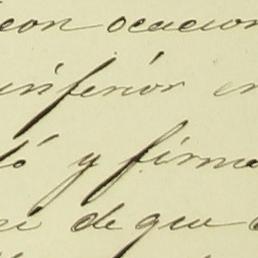 con ocacion
inferior en
tó y firma
de que